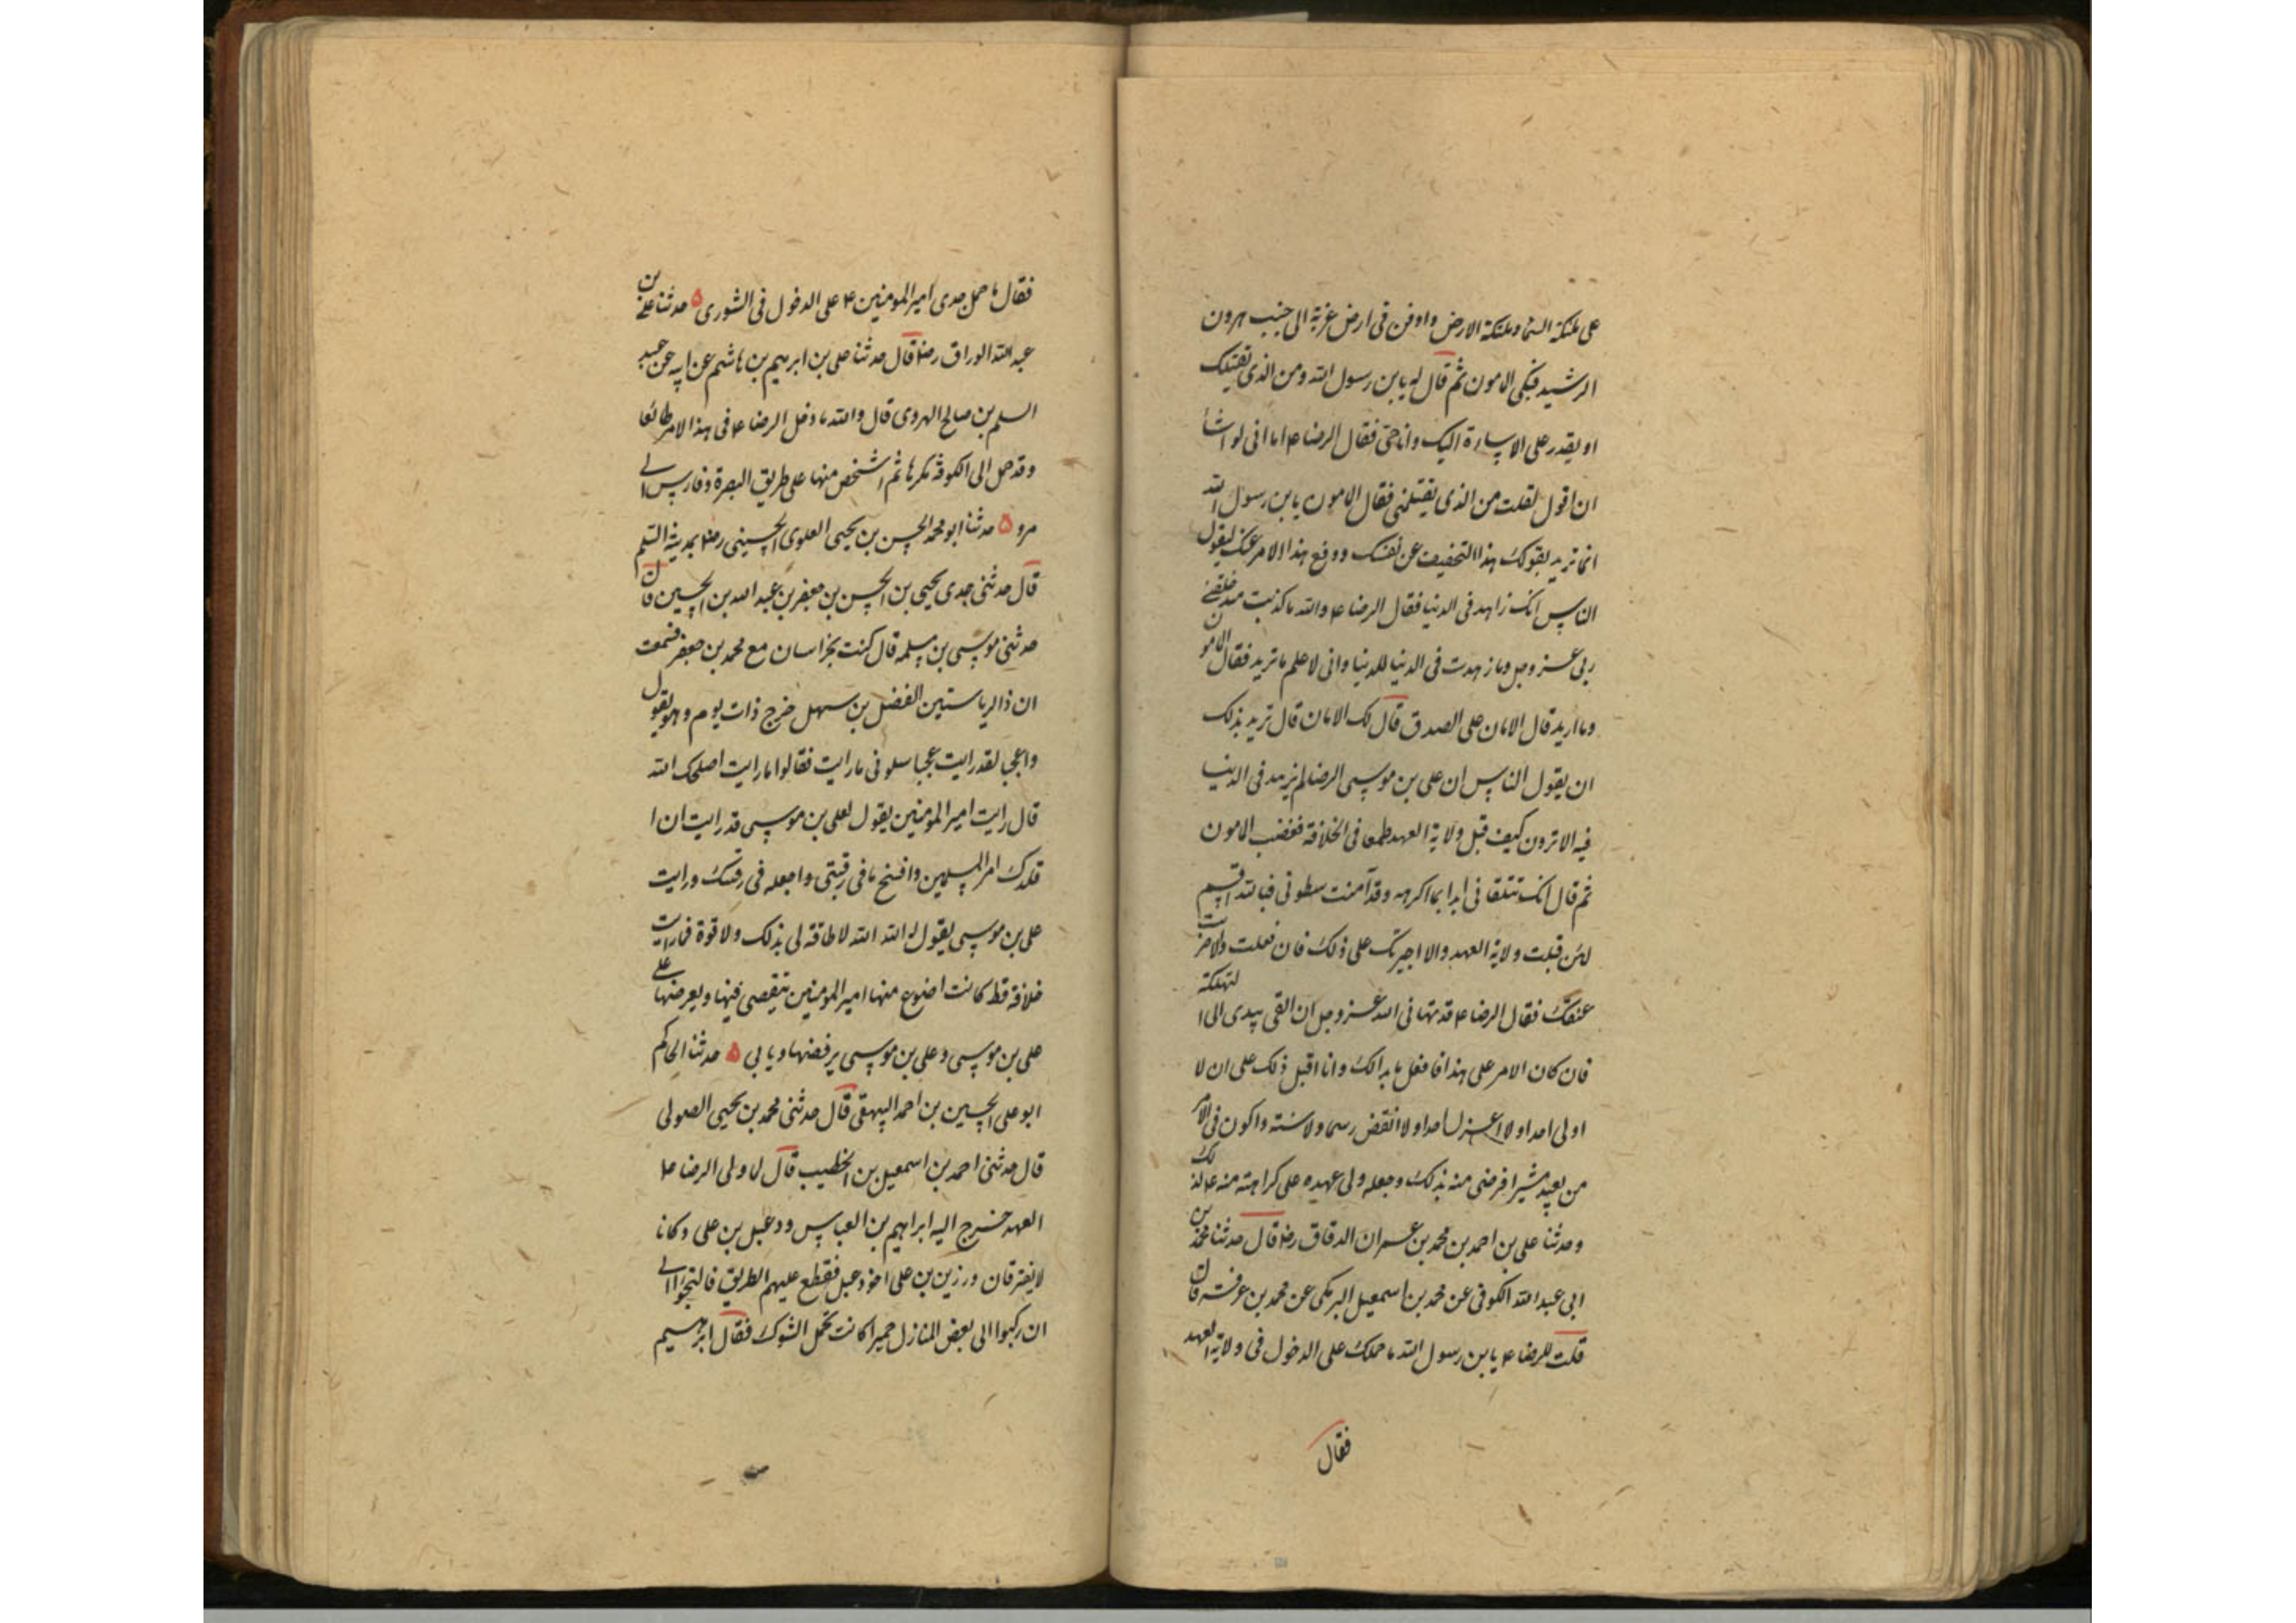 على ملئكة السما وملئكة الارض وادفن فى ارض غربة الى جنب هرون
الرشيد فبكى المامون ثم قال له يابن رسول الله ومن الذى يقتلك
او يقدر على الاساءة اليك وانا حى فقال الرضا ع اما انى لو اشأ
ان اقول لقلت من الذى يقتلنى فقال المامون يابن رسول الله
انما تريد بقولك هذا التخفيف عن نفسك ودفع هذا الامر عنك ليقول
الناس انك زاهد فى الدنيا فقال الرضا ع والله ما كذبت منذ خلقنى
ربى عز وجل وما زهدت فى الدنيا للدنيا وانى لاعلم ما تريد فقال المامون
وما اريد قال الامان على الصدق قال لك الامان قال تريد بذلك
ان يقول الناس ان على بن موسى الرضا لم يزهد فى الدنيا
فيه الا ترون كيف قبل ولاية العهد طمعا فى الخلافة فغضب المامون
ثم قال انك تتلقانى ابدا بما اكرهه وقد آمنت سطوتى فبالله اقسم
لئن قبلت ولاية العهد والا اجبرتك على ذلك فان فعلت والا ضربت
عنقك فقال الرضا ع قد نهانى الله عز وجل ان القى بيدى الى التهلكة
فان كان الامر على هذا فافعل ما بدا لك وانا اقبل ذلك على ان لا
اولى احدا ولا اعزل احدا ولا انقض رسما ولا سنة واكون فى الامر
من بعيد مشيرا فرضى منه بذلك وجعله ولى عهده على كراهته منه ع لذلك
وحدثنا على بن احمد بن محمد بن عمران الدقاق رضه قال حدثنا محمد بن
ابى عبد الله الكوفى عن محمد بن اسمعيل البرمكى عن محمد بن عرفة قال
قلت للرضا ع يابن رسول الله ما حملك على الدخول فى ولاية العهد
فقال
فقال ما حمل جدى امير المومنين ع على الدخول فى الشورى ۵ حدثنا على بن
عبد الله الوراق رضه قال حدثنا على بن ابرهيم بن هاشم عن ابيه عن عبد
السلم بن صالح الهروى قال والله ما دخل الرضا ع فى هذا الامر طائعا
وقد حمل الى الكوفة مكرها ثم اشخص منها على طريق البصرة وفارس الى
مرو ۵ حدثنا ابو محمد الحسن بن يحيى العلوى الحسينى رضه بمدينة السلم
قال حدثنى جدى يحيى بن الحسن بن جعفر بن عبد الله بن الحسين قال
حدثنى موسى بن سلمه قال كنت بخراسان مع محمد بن جعفر فسمعت
ان ذا الرياستين الفضل بن سهل خرج ذات يوم وهو يقول
واعجبا لقد رايت عجبا سلونى ما رايت فقالوا ما رايت اصلحك الله
قال رايت امير المومنين يقول لعلى بن موسى قد رايت ان ا
قلدك امر المسلمين وافسخ ما فى رقبتى واجعله فى رقبتك ورايت
على بن موسى يقول له الله الله لا طاقة لى بذلك ولا قوة فما رايت
خلافة قط كانت اضيع منها امير المومنين يتقصى فيها ويعرضها على
على بن موسى وعلى بن موسى يرفضها ويابى ۵ حدثنا الحاكم
ابو على الحسين بن احمد البيهقى قال حدثنى محمد بن يحيى الصولى
قال حدثنى احمد بن اسمعيل بن الخطيب قال لما ولى الرضا ع
العهد خرج اليه ابراهيم بن العباس ودعبل بن على وكانا
لا يفترقان ورزين بن على اخو دعبل فقطع عليهم الطريق فالتجوا الى
ان ركبوا الى بعض المنازل حميرا كانت تحمل الشوك فقال ابرهيم